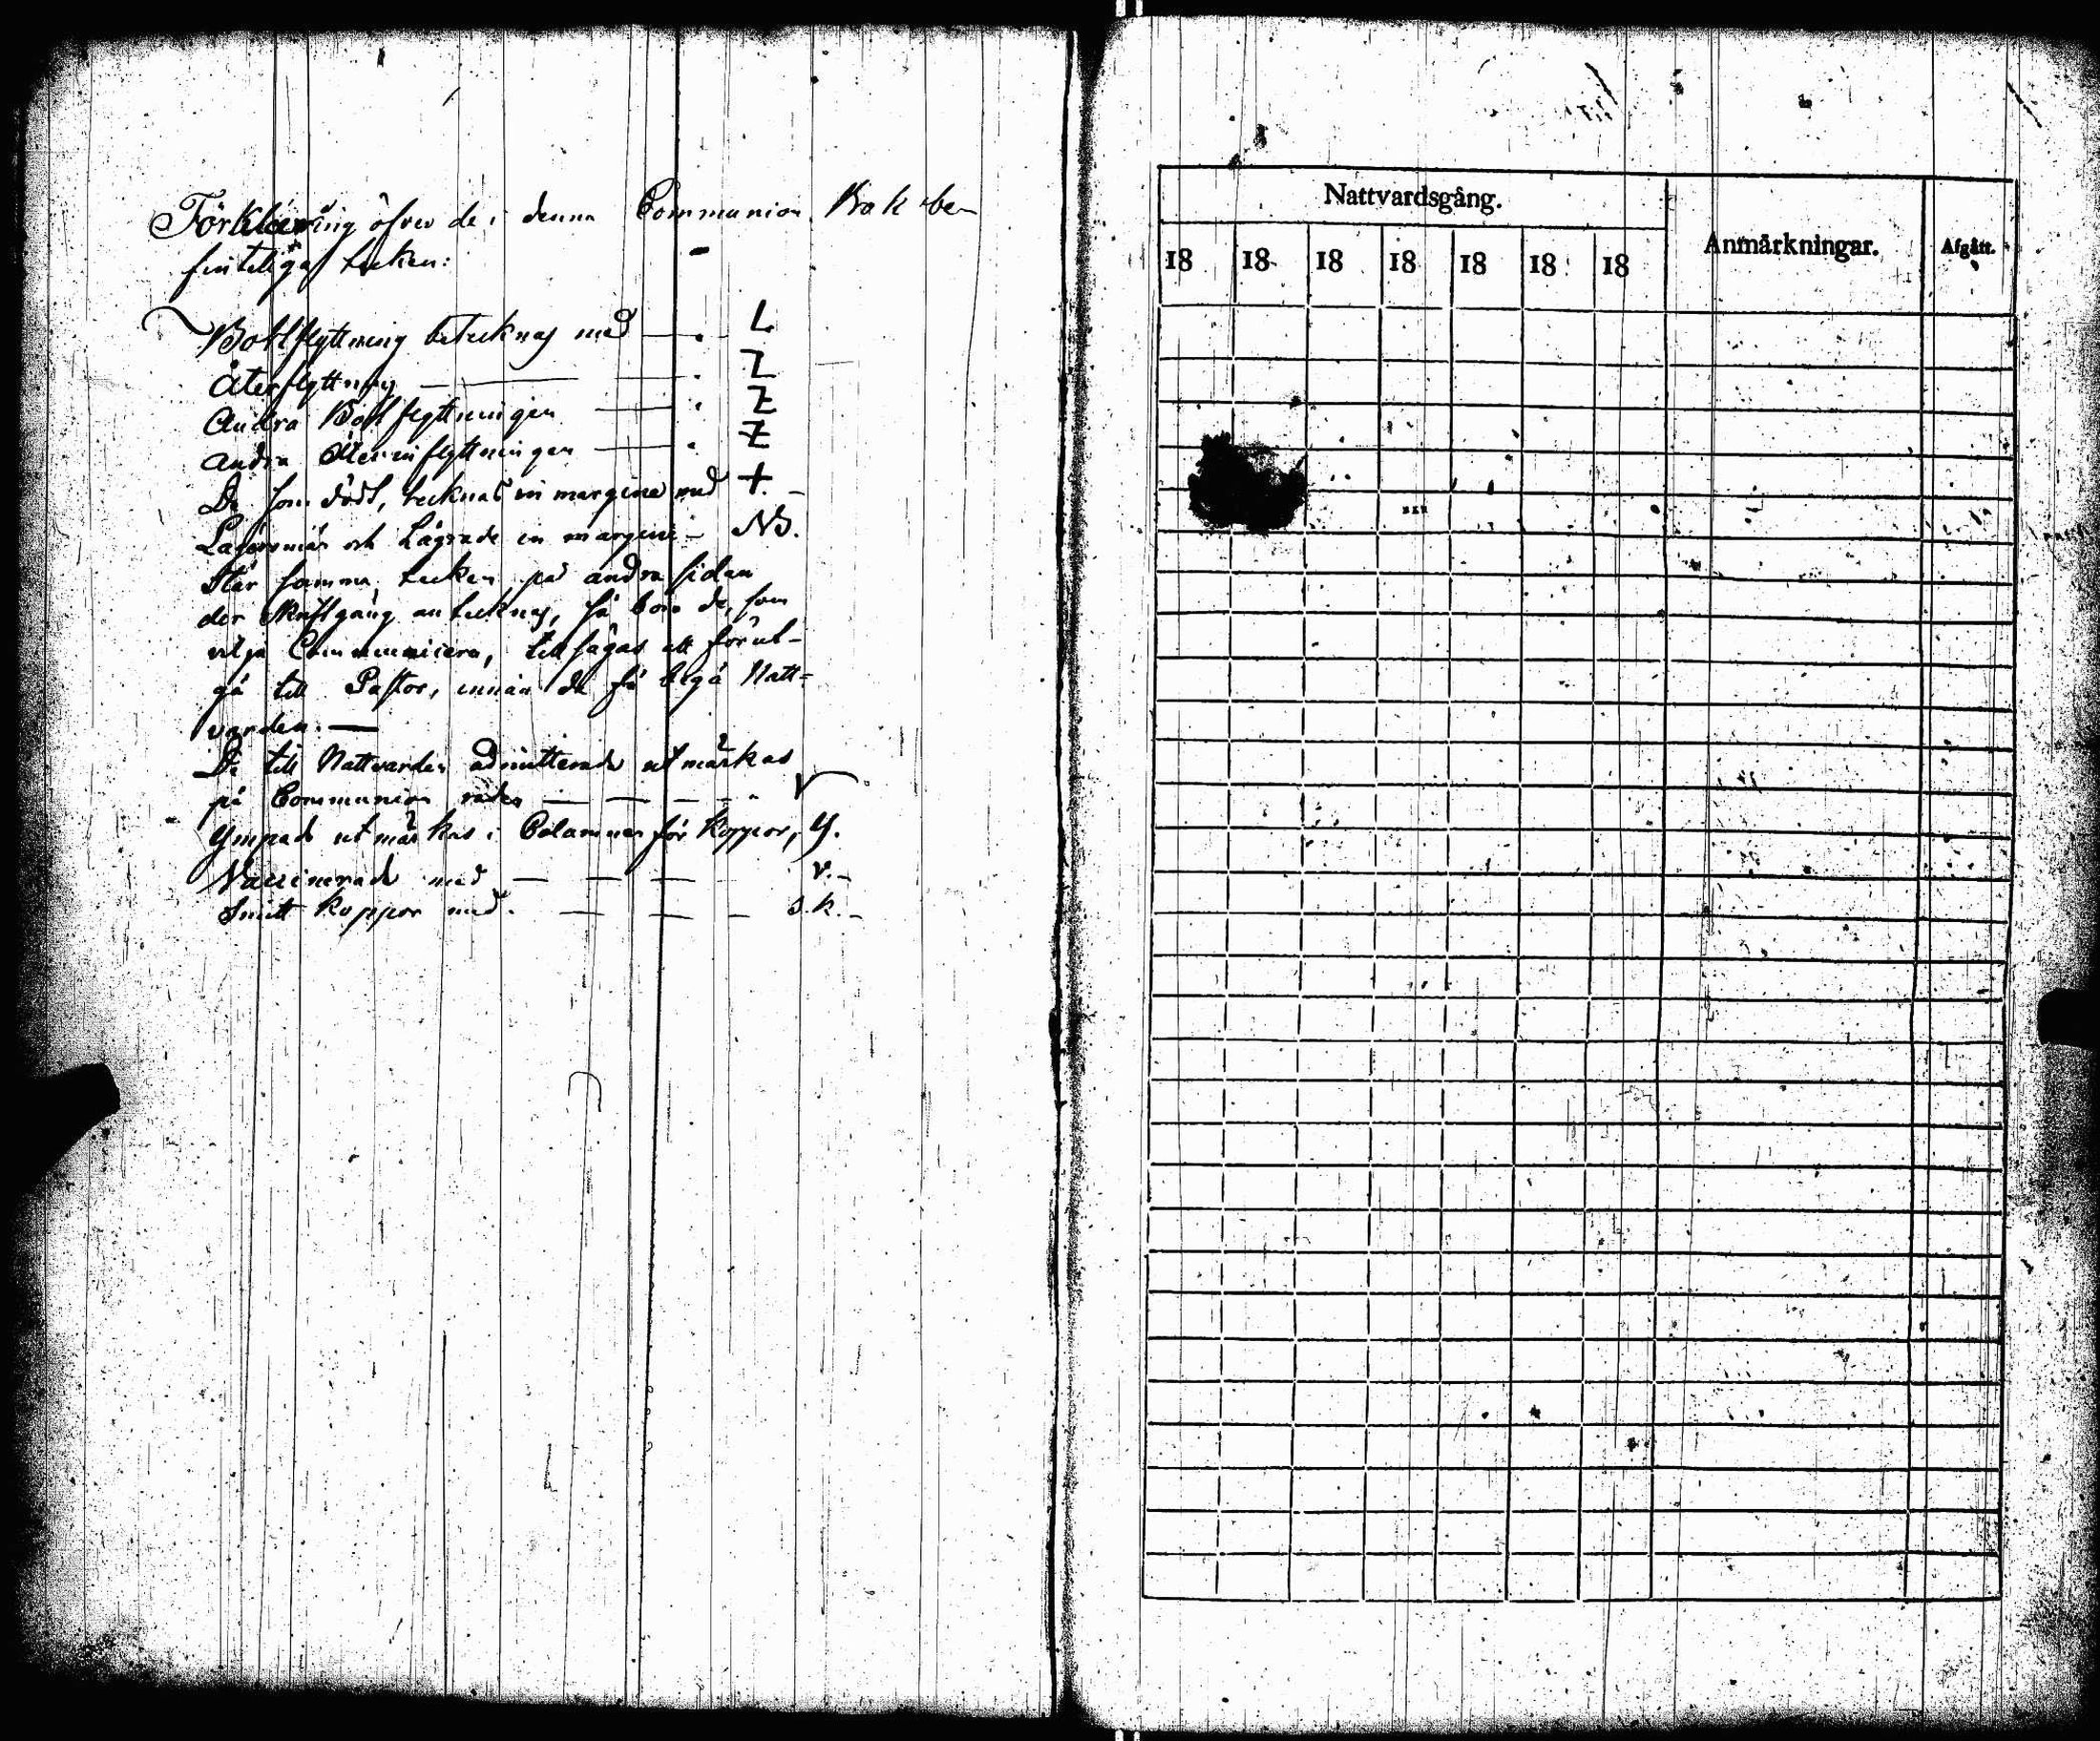 Förklaring öfver de i denna Communion Bok be-
finteliga tecken:
Bortflyttning betecknas med L
Återflyttning Z
Andra Bortflyttningen Z
Andra Återinflyttningen Z
De som dödt, tecknas in margine med +.
Lägersmän och Lägrade in margine - NB.
Står samma tecken på andra sidan
der Skriftgång antecknas, så böra de, som
vilja Communicera, tillsägas att förut-
gå till Pastor, innan de få begå Natt-
varden. —
De till Nattvarden admitterade utmärkas
på Communion raden
Ympade utmärkas i Columnen för Koppor, y.
Vaccinerade med — — — v. -
Smitt koppor med. — — — s.k. -
Nattvardsgång.
Anmärkningar.
Afgått.
18 18 18 18 18 18 18